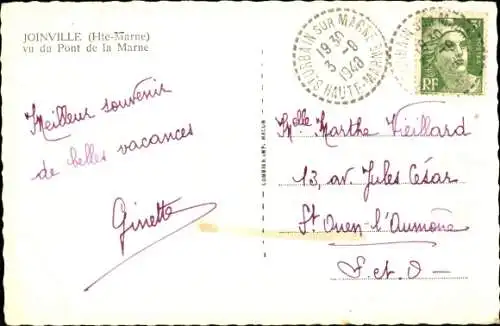 JOINVILLE (Hte-Marne)
vu du Pont de la Marne
ST URBAIN SUR MARNE
HAUTE-MARNE
1930
3-8
1948
RF
Meilleur souvenir
de belles vacances
Ginette
Melle Marthe Vieillard
13, av. Jules César
St Ouen-l'Aumône
S. et. O -